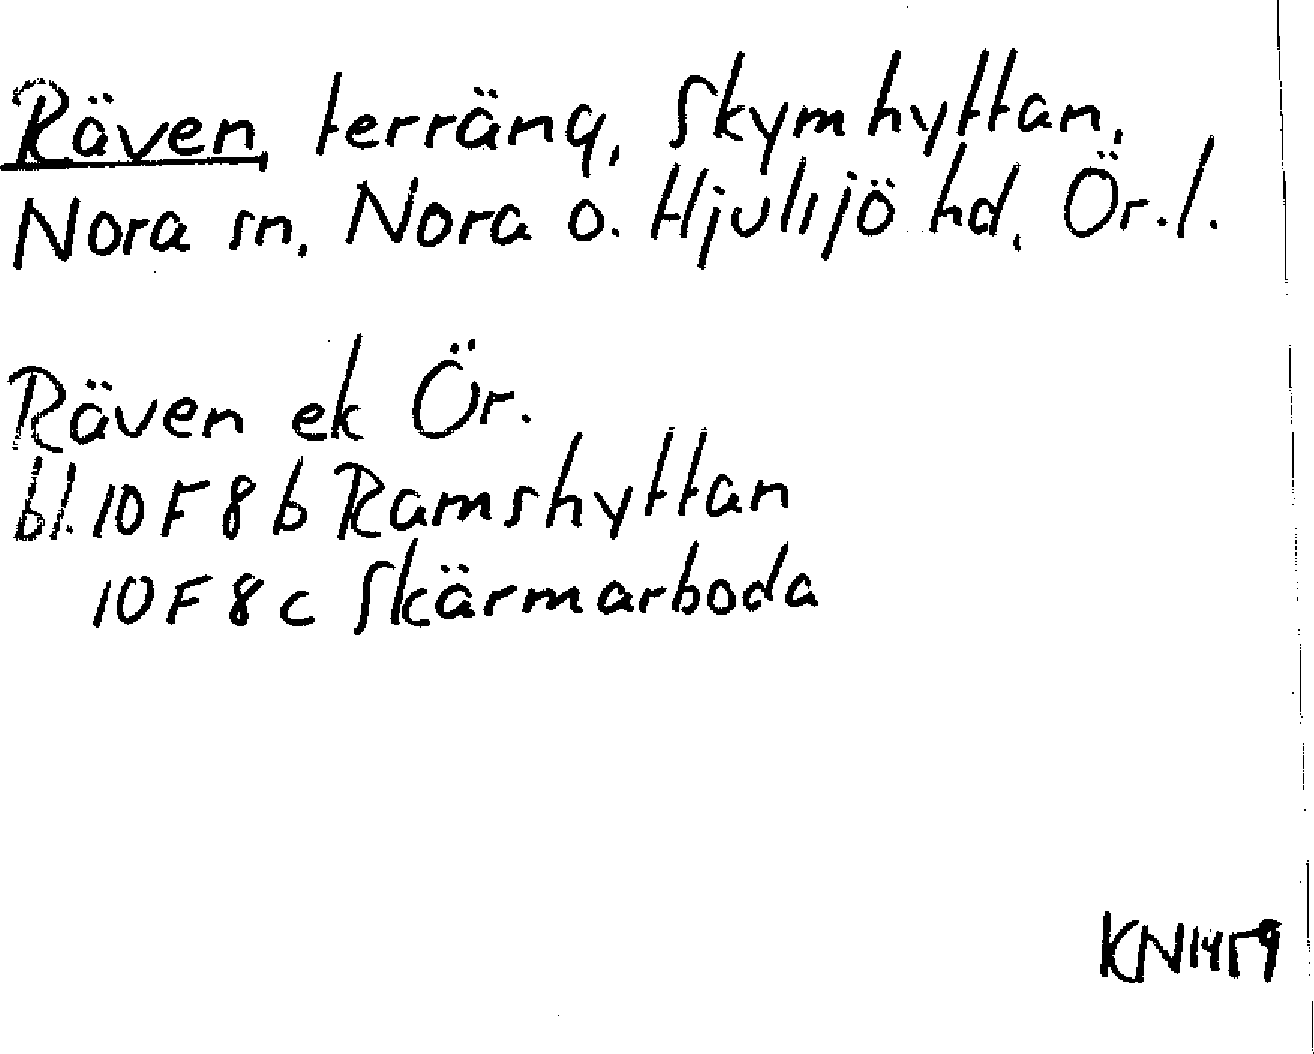 Räven, terräng, Skymhyttan,
Nora sn, Nora o. Hjulsjö hd, Ör.l.
Räven ek Ör.
bl. 10F8b Ramshyttan
10F8c Skärmarboda
KN1459